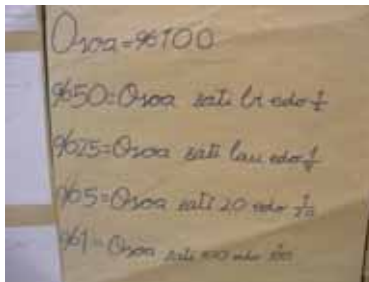 Osoa=%100
%50=Osoa zati bi edo 1/2
%25=Osoa zati lau edo 1/4
%5=Osoa zati 20 edo 1/20
%1=Osoa zati 100 edo 1/100